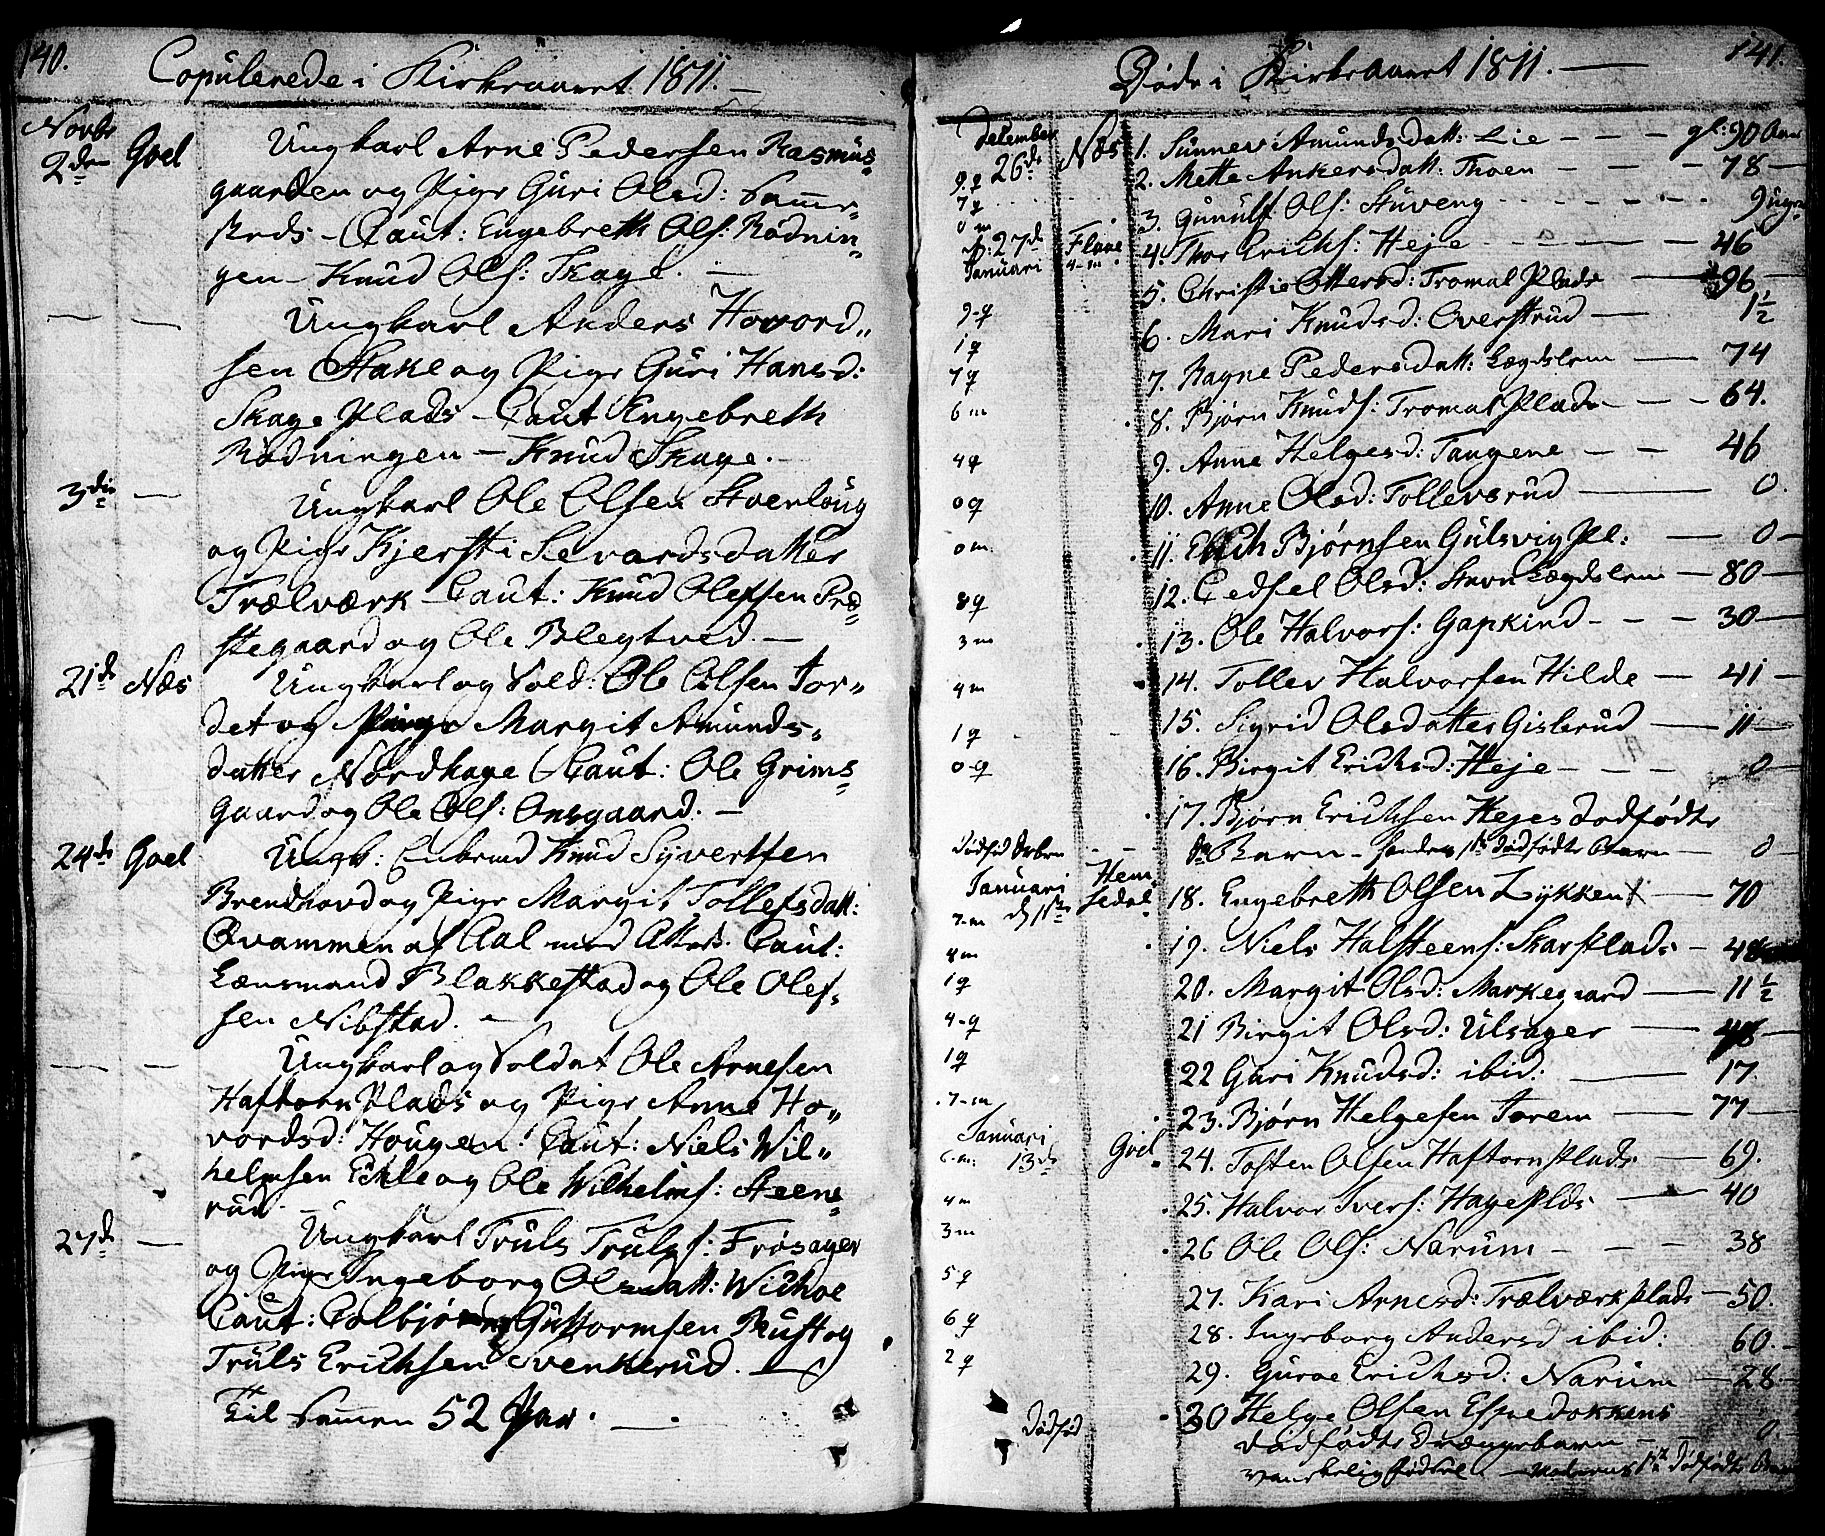 140.
Copulerede i Kirkeaaret 1811. —
Novbr
2den Goel Ungkarl Arne Pedersen Rasmus-
gaarden og Pige Guri Olsd:
Caut: Engebreth Ols: Rødnin-
gen - Knud Ols: Skage. —
— — Ungkarl Anders Hovord-
sen Hake og Pige Guri Hansd:
Skage Plads - Caut Engebreth
Rødningen — Knud Skage. —
3die — Ungkarl Ole Olsen
og Pige Kjersti Sevardsdatter
Trælværk - Caut: Knud Olefsen Præ-
stegaard og Ole Blegtved. —
21de Næs Ungkarl og Sold: Ole Olsen Jor-
det og Pige Margit Amunds-
datter Nordhage Caut: Ole Grims-
gaard og Ole Ols: Onsgaard. —
24de Goel Ungk: Enkemd Knud Syvertsen
Brenhovd og Pige Margit Tollefsdatt:
Qvammen af Aal med Attest. Caut:
Lænsmand Blakkestad og Ole Olef-
sen Nibstad. —
— — Ungkarl og Soldat Ole Arnesen
Haftorn Plads og Pige Anne Ho-
vordsd: Hougen. Caut: Niels Wil-
helmsen Eklle og Ole Wilhelms: Steene-
rud. —
27de — Ungkarl Truls Truls: Frøsager
og Pige Ingeborg Olsdatt: Wichoe
Caut: Colbjørn Guttormsen Rust og
Truls Erichsen Svenkerud. —
Til sammen 52 Par. —
141.
Døde i Kirkeaaret 1811. —
December
26de Næs 1. Sunnev Amundsdatt: Lie — — — gl: 90 Aar
9. q 2. Mette Ankersdatt: Thoen — — 78 —
7 q 3. Gunulf Ols: Stuveng 9 uger
0 m
d. 27de Flaae 4. Thor Erichs: Heje 46
Januari 4-m. 5. Christie Ottersd: Tromal Plads — 96 —
9-q 6. Mari Knudsd: Overstrud — 1½
1 q 7. Ragne Pedersdatt: Lægdslem — 74
7 q 8. Bjørn Knuds: Tromal Plads — — 64.
6 m 9. Anne Helgesd: Tangene — — 46
4 q 10. Anne Olsd: Tollevsrud — 0.
0 q 11. Erich Bjørnsen Gulsvig Pl: — 0 —
0 m. 12. Cedsel Olsd: Lægdslem — 80 —
8 q 13. Ole Halvors: Gapkind - - - 30 —
3 m 14. Tollev Halvorsen Hilde — 41 —
4 m 15. Sigrid Olsdatter Gislerud — 11 —
1 q 16. Birgit Erichsd: Heje — — — 0 —
0-q 17. Bjørn Erichsen Hejes dødfødte
Dødfød Barn - hendes 1ste dødfødte Barn — 0 —
Januari Hem-
7-m d. 1ste sedal. 18. Engebreth Olsen Lykken — 70
8 m 19. Niels Halsteens: Skarsplads — 48
1 q 20. Margit Olsd: Markegaard — 11½
4-q 21 Birgit Olsd: Ulsager — 48 —
1 q 22 Guri Knudsd: ibid: — 17.
7-m 23. Bjørn Helgesen Torem — 77 —
Januari
6-m: 13de Goel 24. Tosten Olsen Haftorn Plads — 69.
4 m 25. Halvor Ivers: Hageplads — 40
3 m 26 Ole Ols: Narum — — — 38
5 q 27. Kari Arnesd: Trælværk Plads — 50.
6 q 28. Ingeborg Andersd ibid: 60. —
2 q 29. Guroe Erichsd: Narum — 28 —
Dødfød 30 Helge Olsen Espedokkens
dødfødte Drængebarn — — 0.
vanskelig Fødsel — Moderens 1ste dødfødte Barn